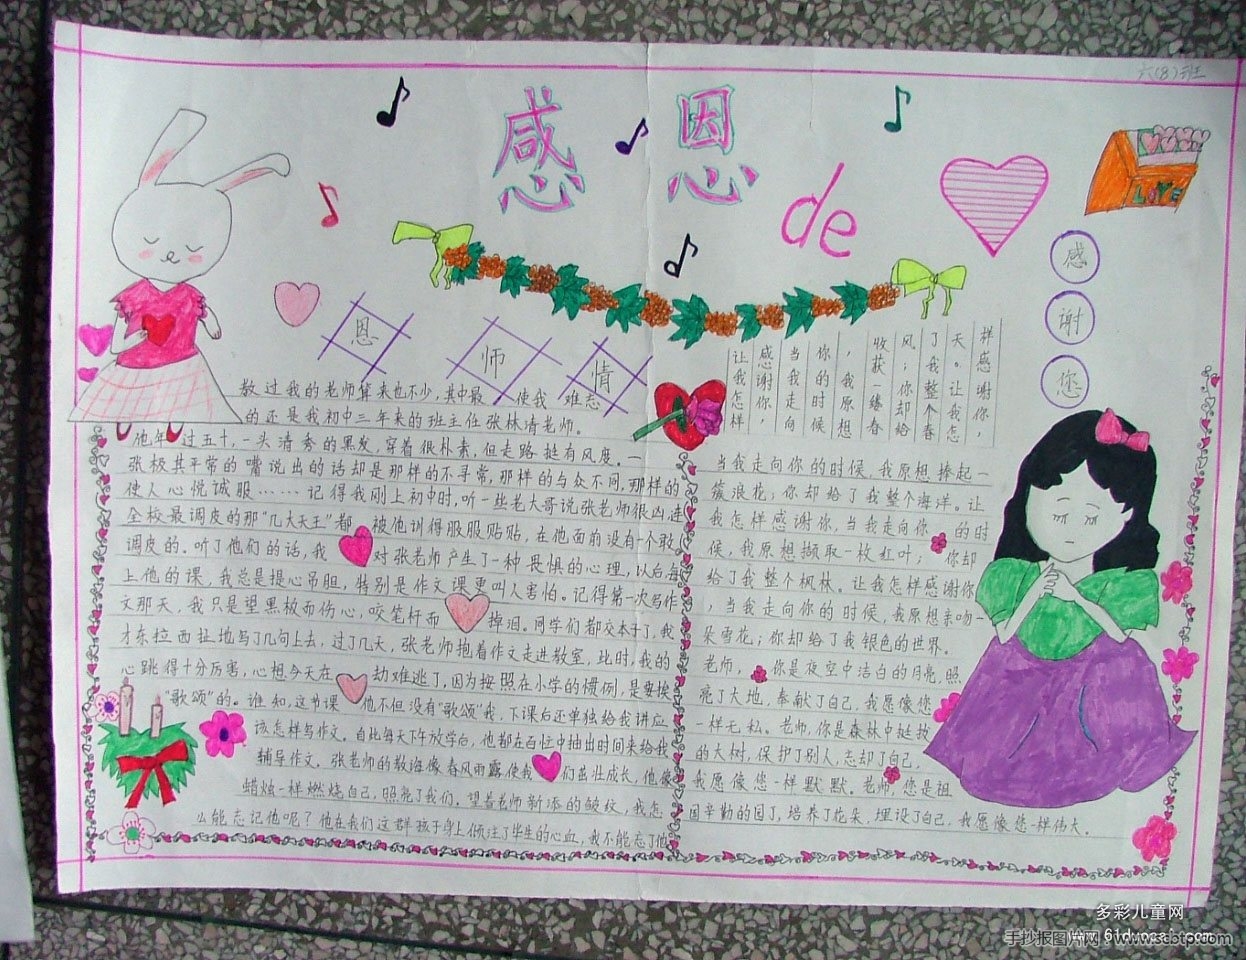 六(8)班
感恩
de
LOVE
感
谢
您
恩
师
情
教过我的老师算来也不少,其中最使我难忘
的还是我初中三年来的班主任张林清老师。
他年过五十,一头清秀的黑发,穿着很朴素,但走路挺有风度。一
张极其平常的嘴说出的话却是那样的不寻常,那样的与众不同,那样的
使人心悦诚服……记得我刚上初中时,听一些老大哥说张老师很凶连
全校最调皮的那“几大天王”都被他训得服服贴贴,在他面前没有一个敢
调皮的。听了他们的话,我对张老师产生了一种畏惧的心理,以后每
上他的课,我总是提心吊胆,特别是作文课更叫人害怕。记得第一次写作
文那天,我只是望黑板而伤心,咬笔杆而掉泪。同学们都交本子了,我
才东拉西扯地写了几句上去,过了几天,张老师抱着作文走进教室,此时,我的
心跳得十分厉害,心想今天在劫难逃了,因为按照在小学的惯例,是要挨
“歌颂”的。谁知,这节课他不但没有“歌颂”我,下课后还单独给我讲应
该怎样写作文。自此每天下午放学后,他都在百忙中抽出时间来给我
辅导作文。张老师的教诲像春风雨露,使我们茁壮成长,他像
蜡烛一样燃烧自己,照亮了我们。望着老师新添的皱纹,我怎
么能忘记他呢?他在我们这群孩子身上倾注了毕生的心血,我不能忘了他
样感谢你,
天。让我怎
了我整个春
风;你却给
收获一缕春
,我原想
你的时候
当我走向
感谢你,
让我怎样
当我走向你的时候,我原想捧起一
簇浪花;你却给了我整个海洋。让
我怎样感谢你,当我走向你的时
候,我原想撷取一枚红叶;你却
给了我整个枫林。让我怎样感谢你
,当我走向你的时候,我原想亲吻一
朵雪花;你却给了我银色的世界。
老师,你是夜空中洁白的月亮,照
亮了大地,奉献了自己,我愿像您
一样无私。老师,你是森林中挺拔
的大树,保护了别人,忘却了自己,
我愿像您一样默默。老师,您是祖
国辛勤的园丁,培养了花朵,埋没了自己,我愿像您一样伟大。
多彩儿童网
手抄报图片网:www.scbtp.com